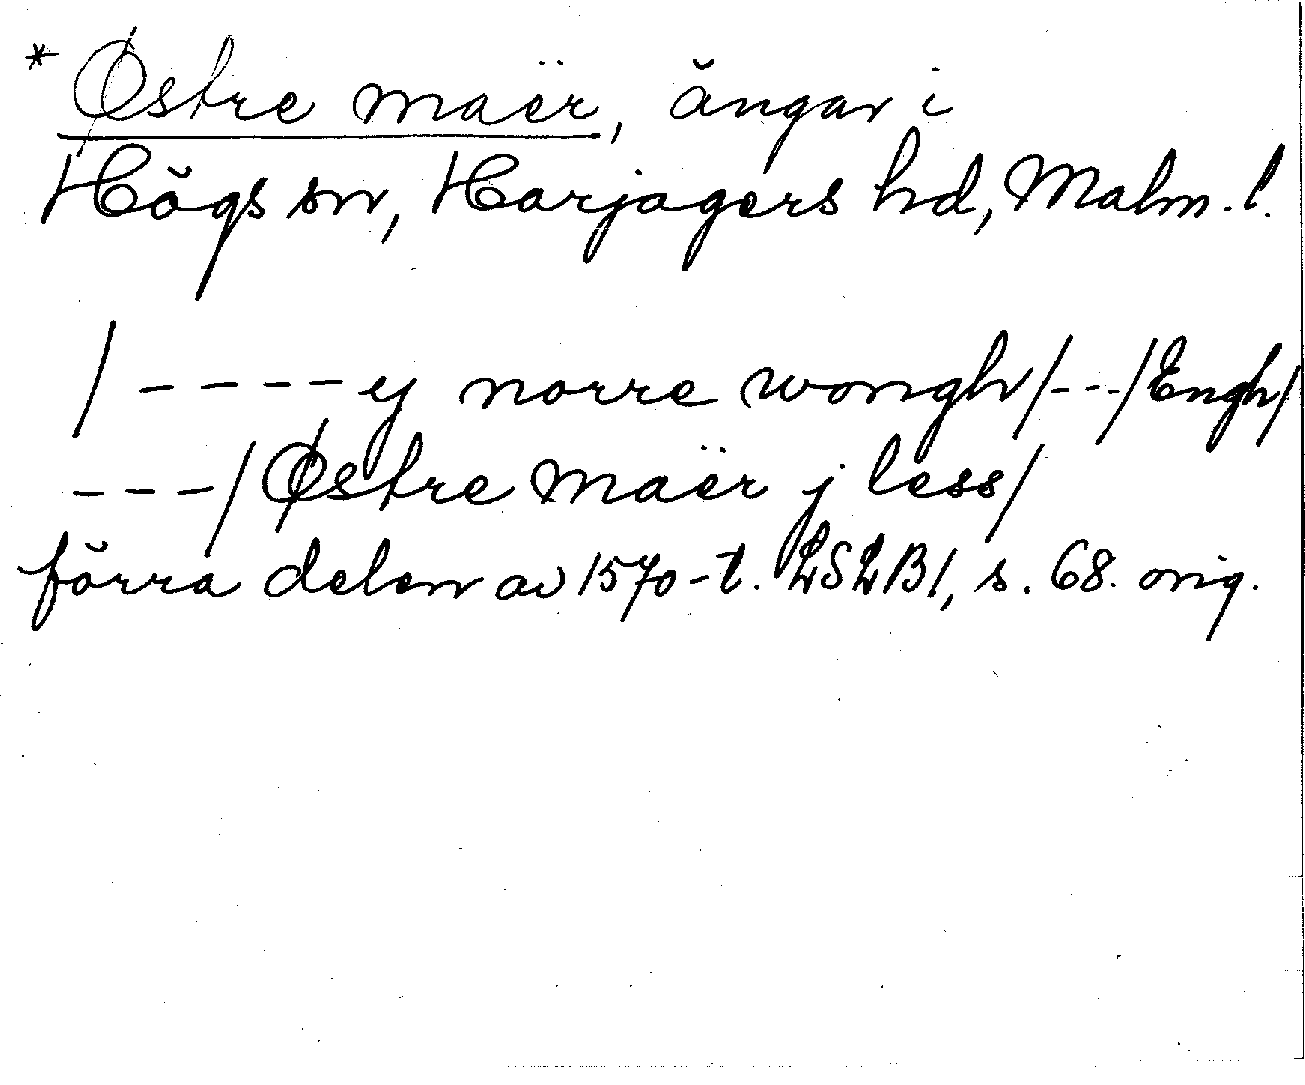 * Østre maër, ängar i
Högs sn, Harjagers hd, Malm. l.
/ - - - - ij norre wongh/ - - - /Engh/
- - - / Østre maër j less/
förra delen av 1570-t. LSLB1, s. 68. orig.